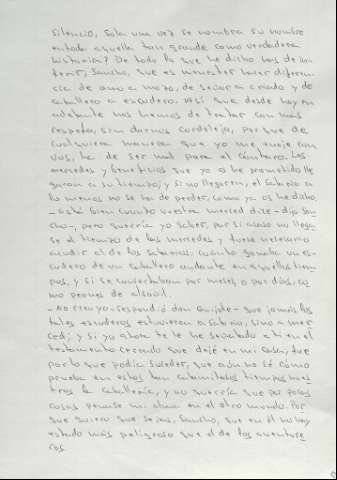 silencio, sola una vez se nombra su nombre
en toda aquella tan grande como verdadera
historia? De todo lo que he dicho has de in-
ferir, Sancho, que es menester hacer diferen-
cia de amo a mozo, de señor a criado y de
caballero a escudero. Así que desde hoy en
adelante nos hemos de tratar con más
respeto, sin darnos cordelejo, porque de
cualquiera manera que yo me enoje con
vos, ha de ser mal para el cántaro. Las
mercedes y beneficios que yo os he prometido lle
garan a su tiempo; y si no llegaren, el salario a
lo menos no se ha de perder, como ya os he dicho.
- Está bien cuanto vuestra merced dize - dijo San
cho -, pero querría yo saber, por si acaso no llega
se el tiempo de las mercedes y fuese necesario
acudir al de los salarios, cuánto ganaba un es-
cudero de un caballero andante en aquellos tiem
pos, y si se concertaban por meses o por días, co
mo peones de albañil.
- No creo yo - respondió don Quijote - que jamás los
tales escuderos estuvieron a salario, sino a mer
ced; y si yo ahora te le he señalado a ti en el
testamento cerrado que dejé en mi casa, fue
por lo que podía suceder, que aún no sé cómo
prueba en estos tan calamitosos tiempos nues
tros la caballería, y no querría que por pocas
cosas penase mi alma en el otro mundo. Por
que quiero que sepas, Sancho, que en él no hay
estado más peligroso que el de los aventure
ros.